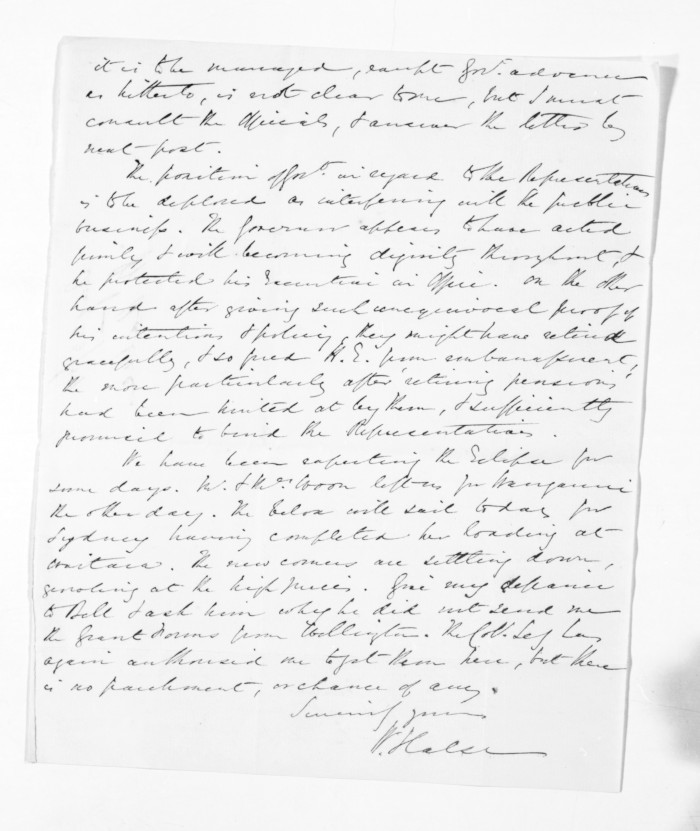 it is to be managed, except Govt. advances
as hitherto, is not clear to me, but I must
consult the Officials, & answer the letter by
next post.
The position of Govt. in regard to the Representatives
is to be deplored as interfering with the public
business. The Governor appears to have acted
firmly & with becoming dignity throughout, &
he protected his Executive in Office. On the other
hand after giving such unequivocal proof of
his intentions & policy, they might have retired
gracefully, & so freed H.E. from embarrassment,
the more particularly after 'retiring pensions'
had been hinted at by them, & sufficiently
promised to bind the Representatives.
We have been expecting the Eclipse for
some days. Mr. & Mrs. Woon left us for Wanganui
the other day. The will sail today for
Sydney having completed her loading at
Waitara. The new comers are settling down,
growling at the high prices. Give my defiance
to Bell & ask him why he did not send me
the Grant Forms from Wellington. The Col. Sec. has
again authorised me to get them here, but there
is no parchment, or chance of any.
Sincerely yours
W. Halse